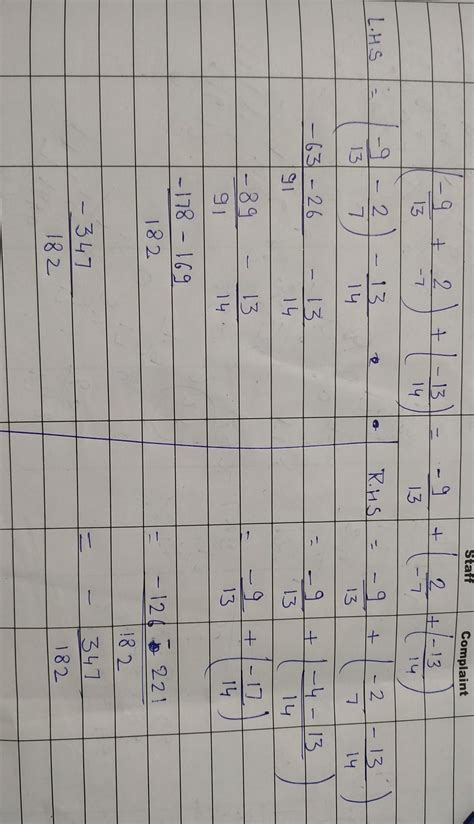 Staff Complaint
(-9/13 + 2/-7) + (-13/14) = -9/13 + (2/-7 + (-13/14))
L.H.S = (-9/13 - 2/7) - 13/14
-63 - 26/91 - 13/14
-89/91 - 13/14
-178 - 169/182
-347/182
R.H.S = -9/13 + (-2/7 - 13/14)
= -9/13 + (-4 - 13/14)
= -9/13 + (-17/14)
= -126 - 221/182
= -347/182